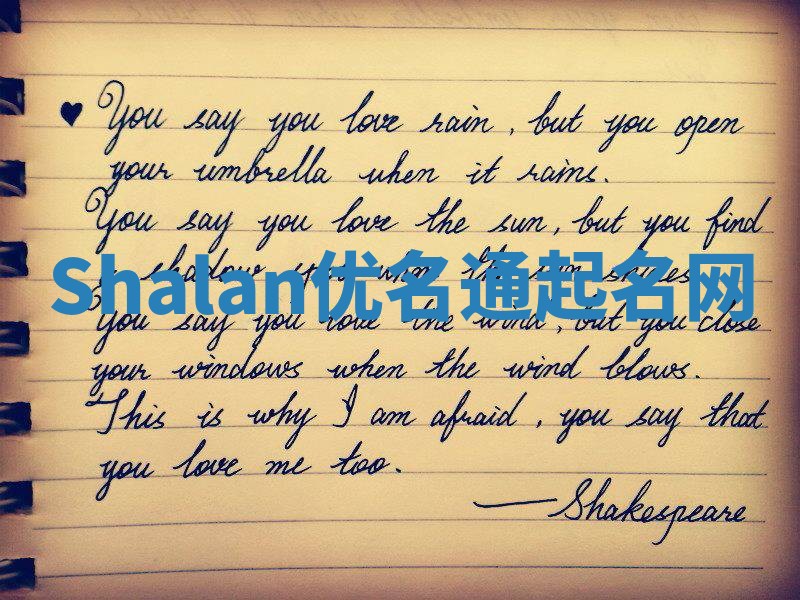 You say you love rain, but you open
your umbrella when it rains.
You say you love the sun, but you find
a shadow spot when the sun shines.
Shalan优名通起名网
You say you love the wind, but you close
your windows when the wind blows.
This is why I am afraid, you say that
you love me too.
—Shakespeare